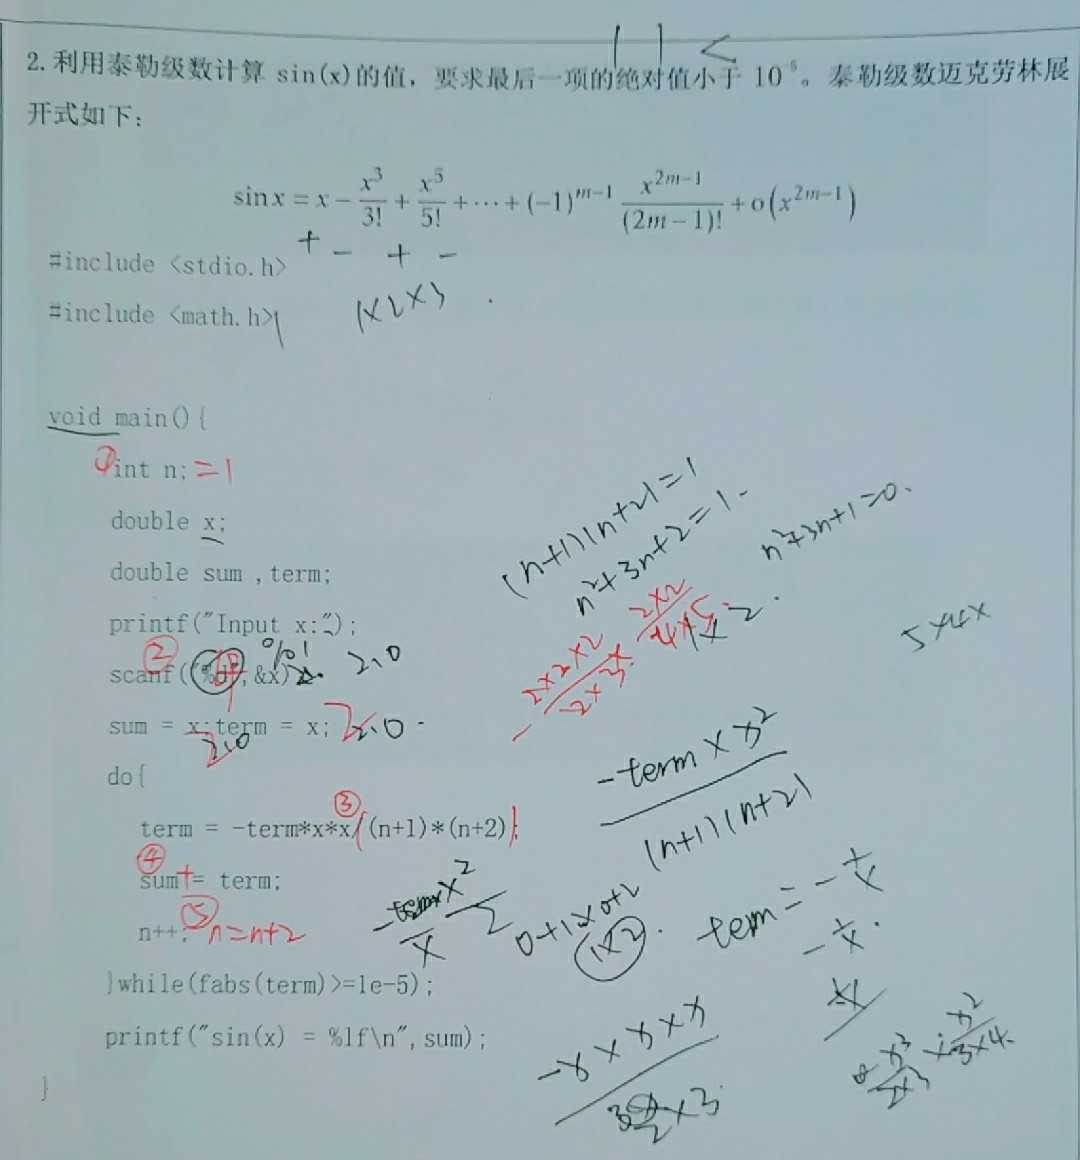 | | <
2. 利用泰勒级数计算 sin(x)的值，要求最后一项的绝对值小于 10⁻⁵。泰勒级数迈克劳林展
开式如下：
sin x = x − x³/3! + x⁵/5! + ⋯ + (−1)^(m−1) x^(2m−1)/(2m−1)! + o(x^(2m−1))
+ − + −
#include <stdio.h>
#include <math.h>
1×2×3
void main(){
①int n; =1
double x;
double sum ,term;
printf("Input x:");
②
%l
scanf("%d",&x); 2.0
sum = x;term = x; 2.0
2.0
do{
③
term = -term*x*x/((n+1)*(n+2));
④
sum+= term;
⑤
n++; n=n+2
}while(fabs(term)>=1e-5);
printf("sin(x) = %lf\n",sum);
}
(n+1)(n+2)=1
n²+3n+2=1.
n²+3n+1=0.
5×4×
−2×2×2/2×3 · 2×2/4×5
−term×x²
(n+1)(n+2)
0+1×0+2
1×2
term=−x
−x×x×x
2×3
x²/3×4